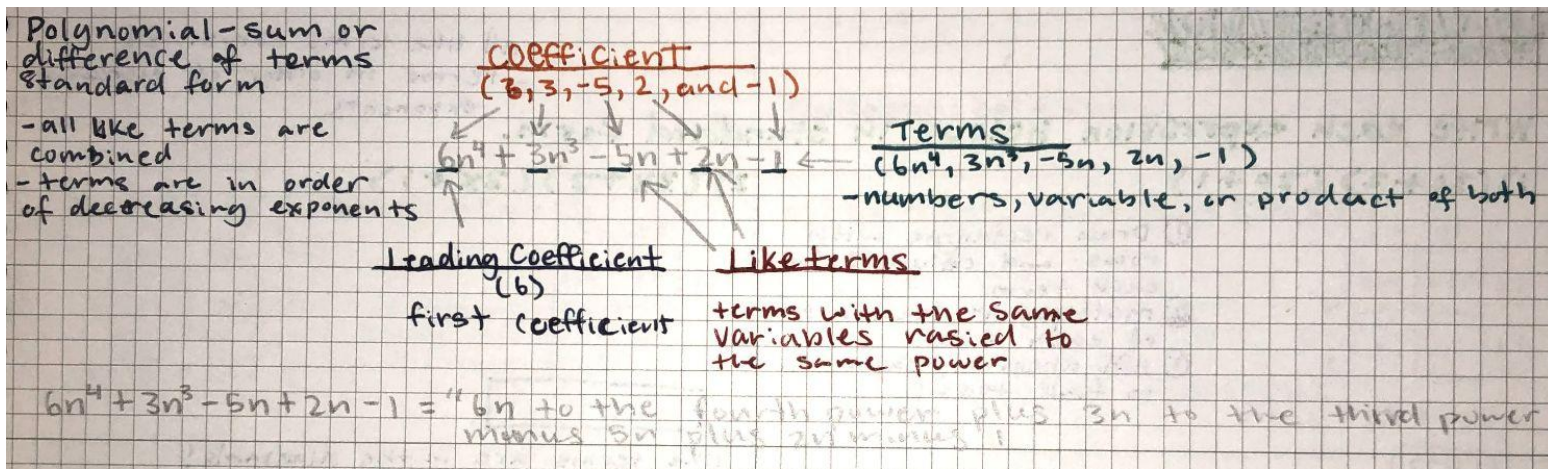 Polynomial - sum or
difference of terms
standard form
- all like terms are
combined
- terms are in order
of decreasing exponents
coefficient
(6, 3, -5, 2, and -1)
6n⁴ + 3n³ - 5n + 2n - 1
Terms
(6n⁴, 3n³, -5n, 2n, -1)
- numbers, variable, or product of both
Leading Coefficient
(6)
first coefficient
Like terms
terms with the same
variables rasied to
the same power
6n⁴ + 3n³ - 5n + 2n - 1 = "6n to the fourth power plus 3n to the third power
minus 5n plus 2n minus 1